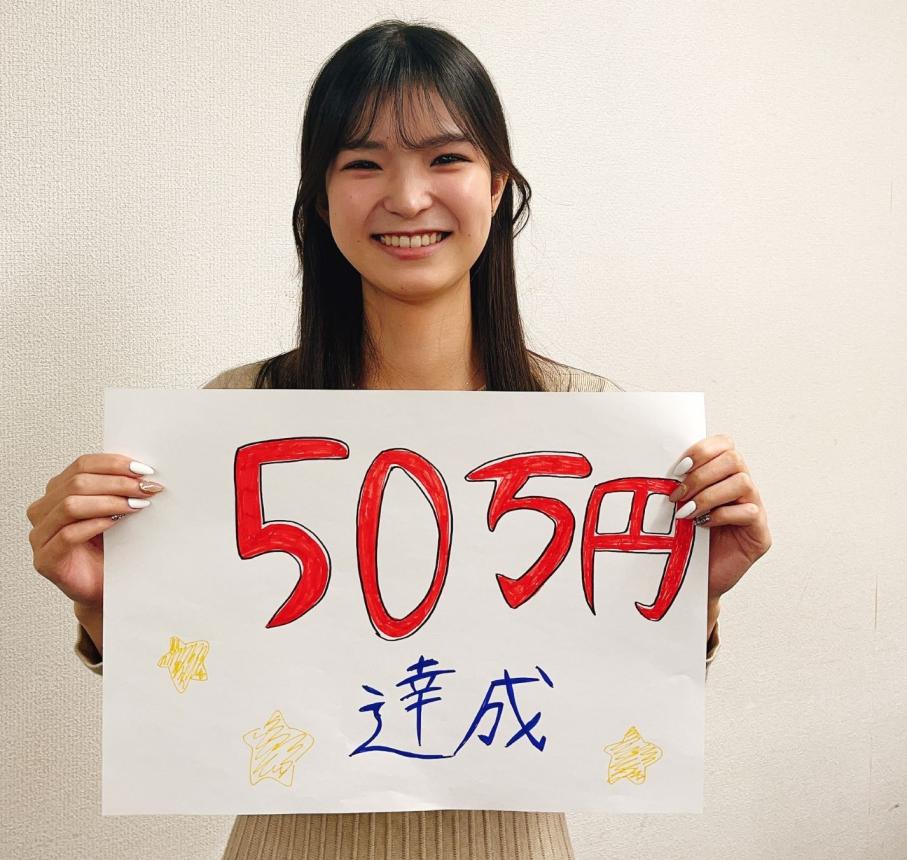 50万円
達成